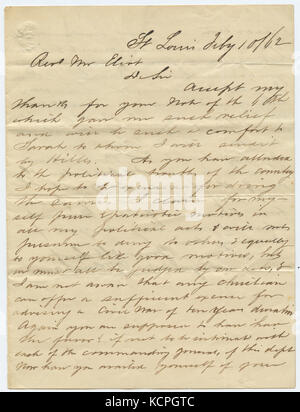 St Louis Feby 10/62
Revd Mr Eliot
D Sir
Accept my
thanks for your Note of the 6th
which gave me such relief
and will be such a comfort to
Sarah to whom I will send it
by Hills. As you have alluded
to the political troubles of the country
I hope to for doing
the same. I claim for my-
self pure & patriotic motives in
all my political acts & will not
presume to deny to others, & equally
to yourself like good motives, but
we must all be judged by our acts, &
I am not aware that any christian
can offer a sufficient excuse for
advising a Civil War of ten years duration
Again you are supposed to have had
the favor if not to be intimate with
each of the commanding Generals, of this dept
Now have you availed yourself of your
alamy
Image ID: KCPGTC
www.alamy.com